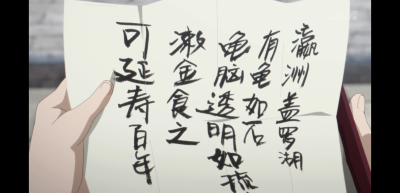 瀛洲盖罗湖
有龟如石
龟脑透明如琉
金食之
可延寿百年